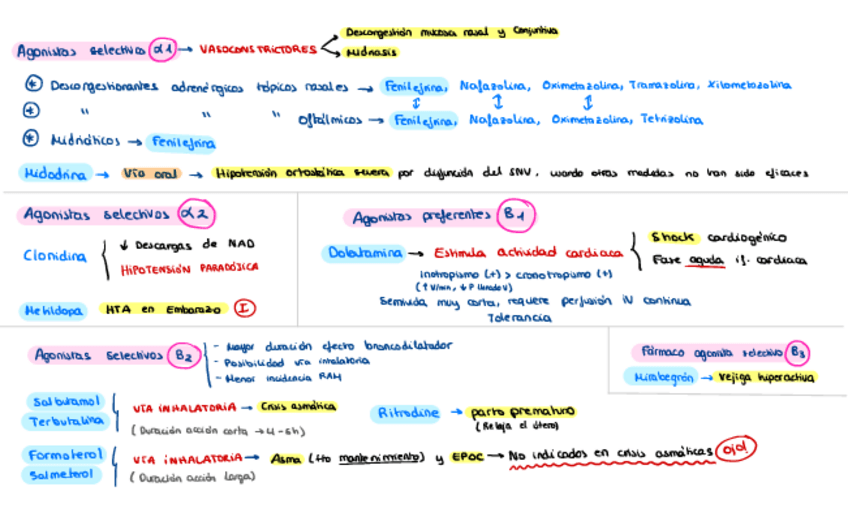 Descongestión mucosa nasal y Conjuntiva
Agonistas selectivos α1 → VASOCONSTRICTORES
Midriasis
* Descongestionantes adrenérgicos tópicos nasales → Fenilefrina, Nafazolina, Oximetazolina, Tramazolina, Xilometazolina
* " " " oftálmicos → Fenilefrina, Nafazolina, Oximetazolina, Tetrizolina
* Midriáticos → Fenilefrina
Midodrina → Vía oral → Hipotensión ortostática severa por disfunción del SNV, cuando otras medidas no han sido eficaces
Agonistas selectivos α2
Clonidina
↓ Descargas de NAD
HIPOTENSIÓN PARADÓJICA
Metildopa HTA en Embarazo I
Agonistas preferentes B1
Dobutamina → Estimula actividad cardiaca
Shock cardiogénico
Fase aguda if. cardiaca
Inotropismo (+) > cronotropismo (+)
(↑ V/min, ↓ P llenado V)
Semivida muy corta, requiere perfusión IV continua
Tolerancia
Agonistas selectivos B2
- Mayor duración efecto broncodilatador
- Posibilidad vía inhalatoria
- Menor incidencia RAM
Fármaco agonista selectivo B3
Mirabegrón → Vejiga hiperactiva
Salbutamol
Terbutalina
VÍA INHALATORIA → Crisis asmática
(Duración acción corta → 4-6h)
Ritrodine → parto prematuro
(Relaja el útero)
Formoterol
Salmeterol
VÍA INHALATORIA → Asma (tto mantenimiento) y EPOC → No indicados en crisis asmáticas Ojo!
(Duración acción larga)